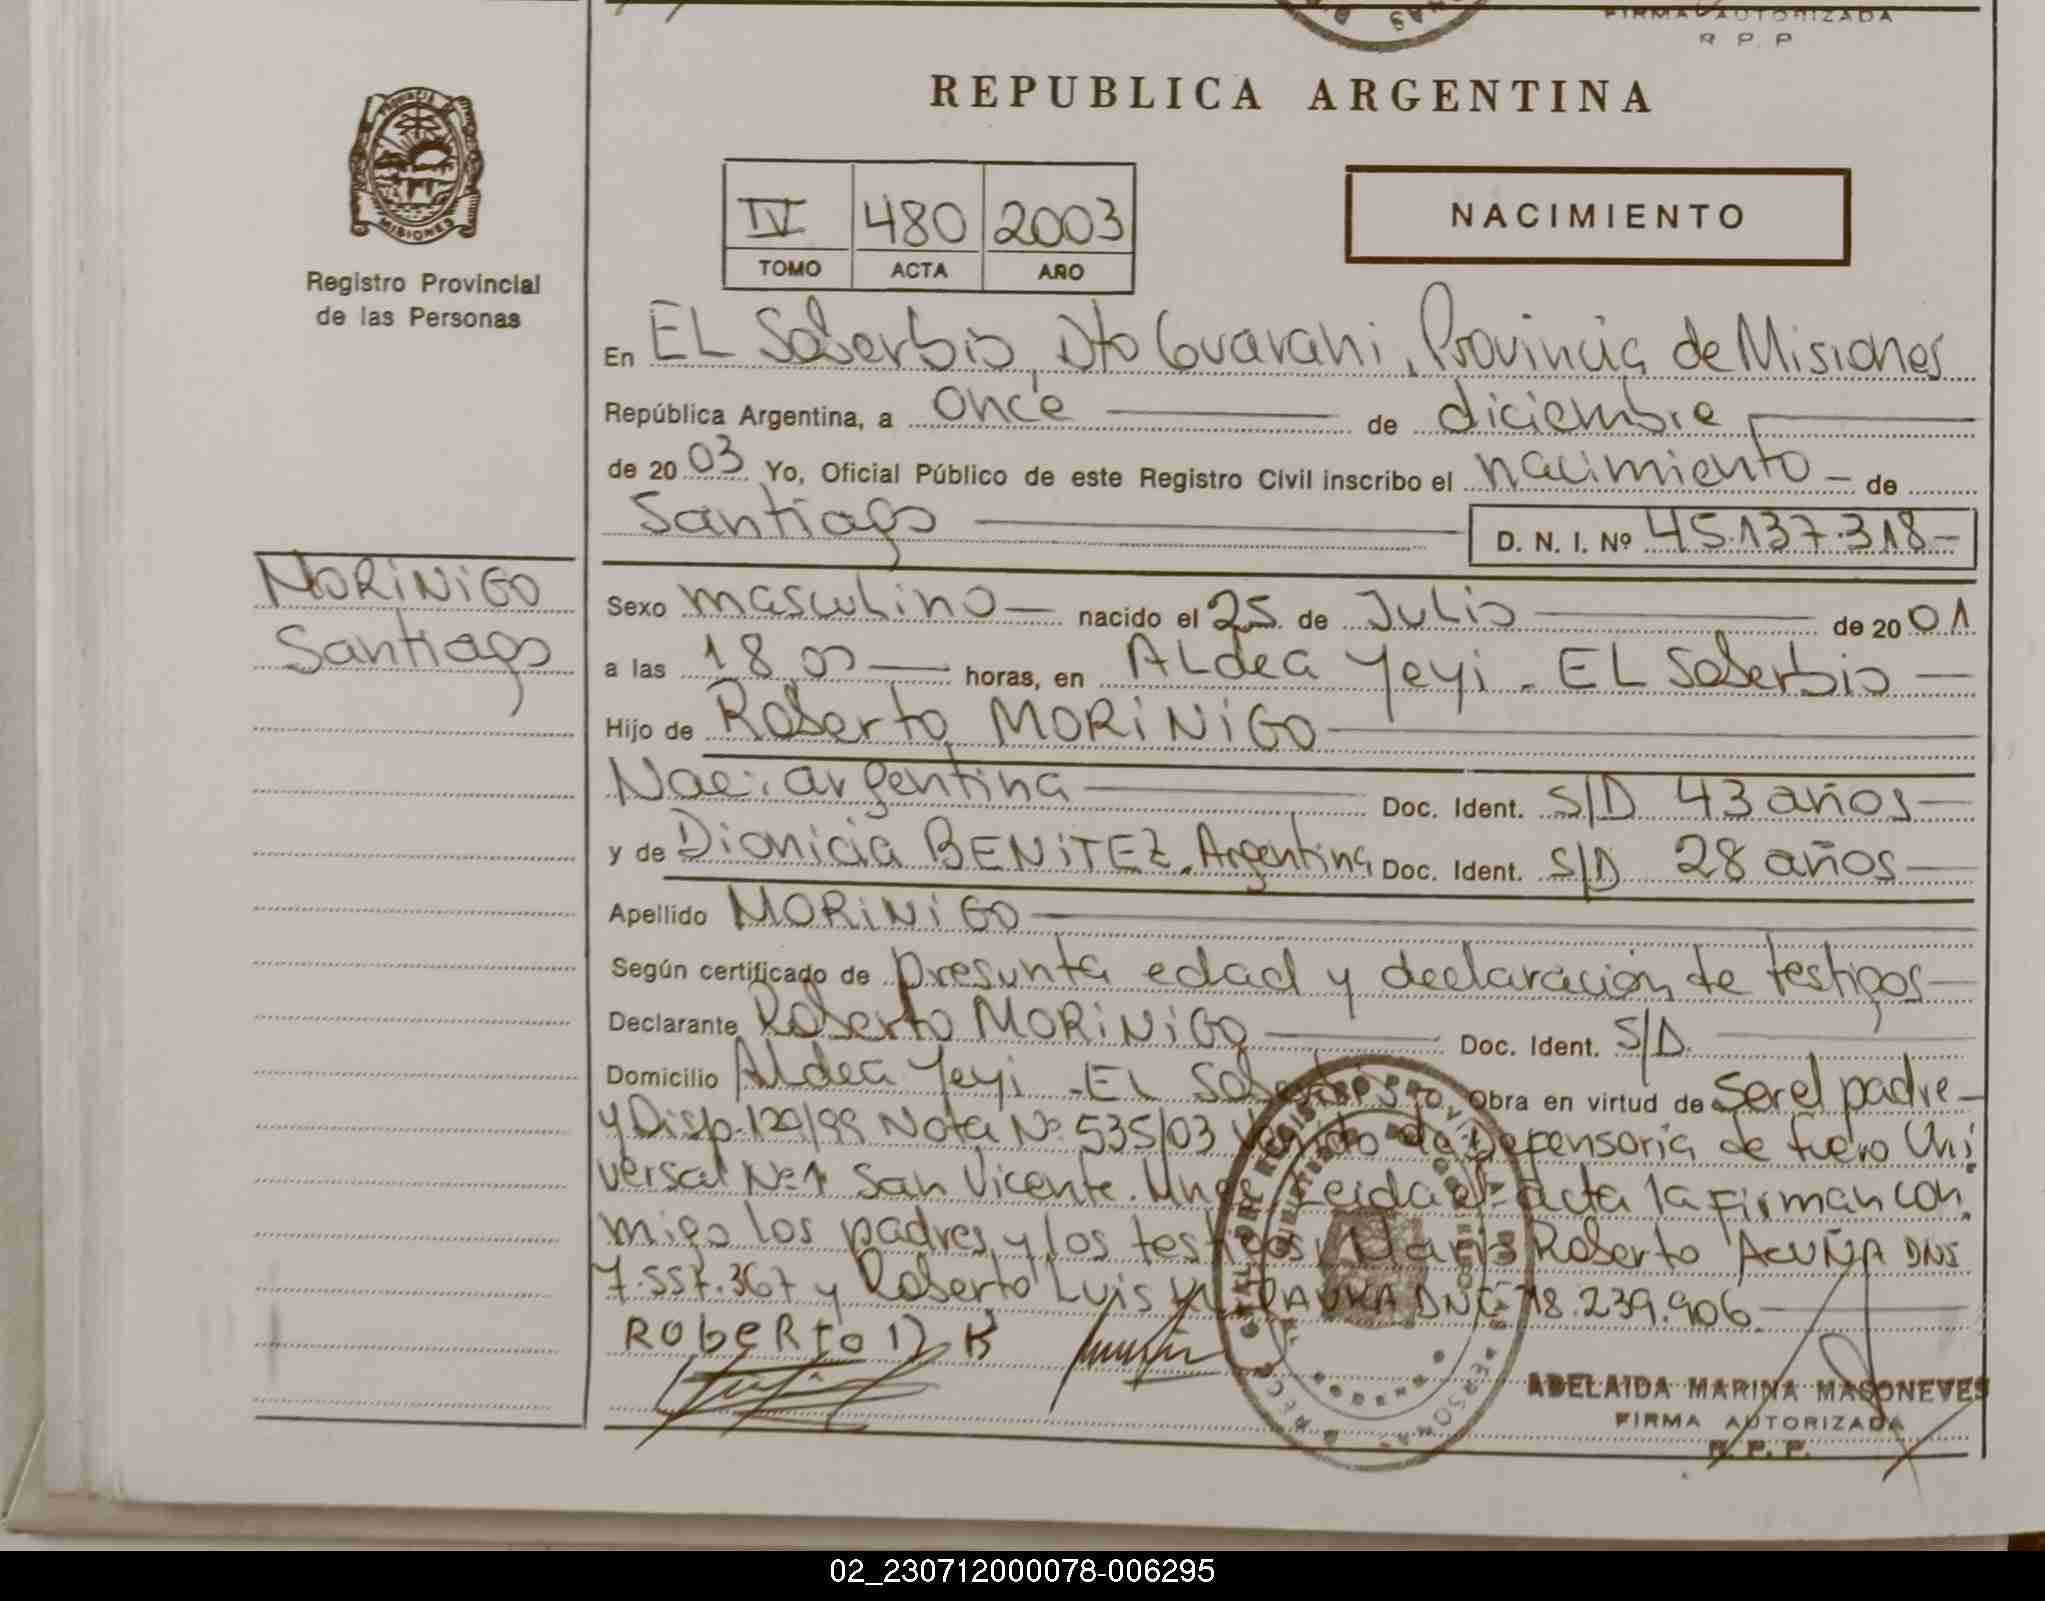 FIRMA AUTORIZADA
R. P. P.
REPUBLICA ARGENTINA
PROVINCIA DE
MISIONES
Registro Provincial
de las Personas
IV 480 2003
TOMO ACTA AÑO
NACIMIENTO
En EL Soberbio, Dto Guarani, Provincia de Misiones
República Argentina, a once de diciembre
de 20 03 Yo, Oficial Público de este Registro Civil inscribo el nacimiento de
Santiago D. N. I. Nº 45.137.318
MORiNiGO
Santiago
Sexo masculino nacido el 25 de Julio de 20 01
a las 18,00 horas, en ALdea Yeyi - EL Soberbio
Hijo de Roberto MORiNiGO
Nac: argentina Doc. Ident. S/D 43 años
y de Dionicia BENiTEZ. Argentina Doc. Ident. S/D 28 años
Apellido MORiNiGO
Según certificado de presunta edad y declaración de testigos
Declarante Roberto MORiNiGO Doc. Ident. S/D.
Domicilio ALdea Yeyi - EL Obra en virtud de ser el padre
y Disp. 129/99 Nota Nº 535/03 de Defensoria de fuero Uni
versal Nº 1 San Vicente. Leida el acta la firman con
migo los padres y los testigos Mario Roberto ACUÑA DNI
7.557.367 y Roberto Luis DNI 18.239.906
RObeRto
ADELAIDA MARINA MASONEVES
FIRMA AUTORIZADA
R. P. P.
02_230712000078-006295